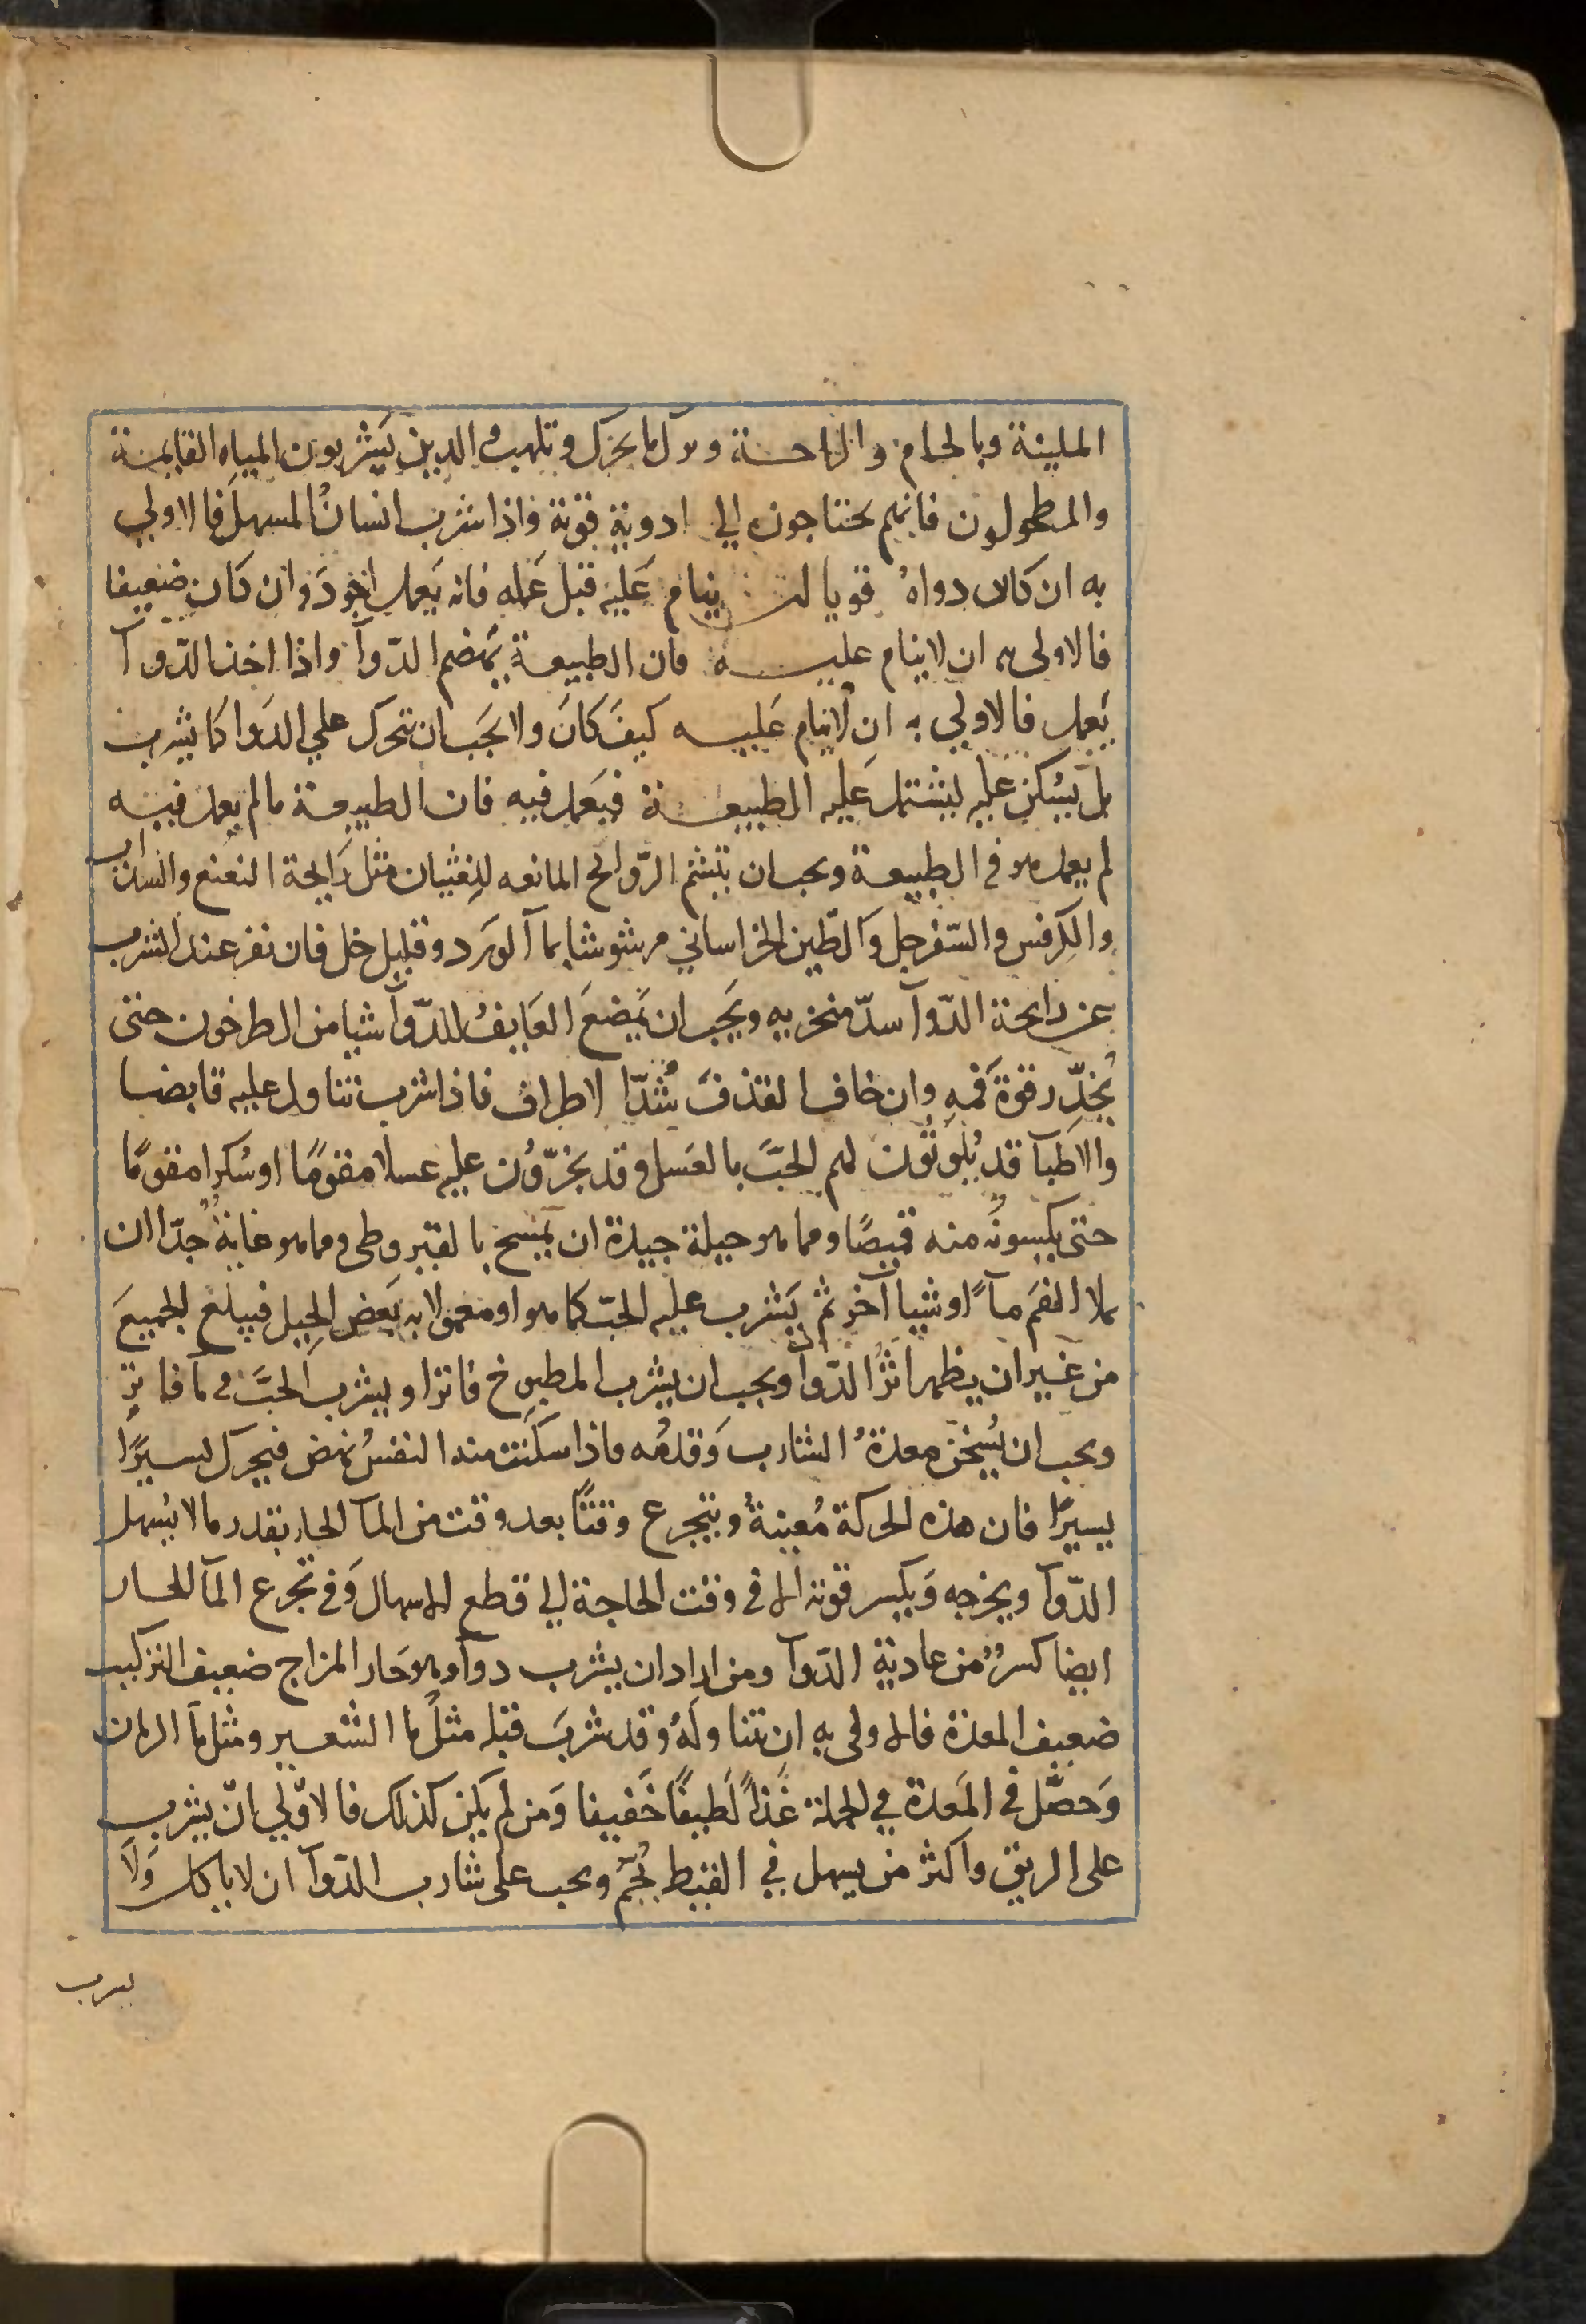 الملينة وبالحمام والراحة وترك ما يحرك وتلهب والذين يشربون المياه القايمة
والمطحولون فانهم يحتاجون الي ادوية قوية واذا شرب انسانٌ المسهلَ فالاولي
به ان كان دواهُ قويا ان ينام عَليه قبل عَمله فانه يَعمل اجْوَدَ وان كان ضعيفا
فالاولى به ان لا ينام عليه فان الطبيعة تهضم الدّوآ واذا اخذ الدّوآ
يَعمل فالاولي به ان لا ينام عَليه كيفَ كانَ ولا يجَب ان يتحرك علي الدَوا كما يشرب
بل يَسْكن عليه ليشتمل عَليه الطبيعة فيَعمل فيه فان الطبيعة ما لم يعمل فيه
لم يعمل هو في الطبيعة ويجب ان يتشمّ الرّوائح المانعه للغثيان مثل رَايحة النعنع والسداب
والكرفس والسّفرجل وَالطّين الخراساني مرشوشا بمآ الوَرد وقليل خل فان نفر عند الشرب
عن رايحة الدّوآ سدّ منخريه ويَجب ان يَمضغَ العَايفُ للدّوآ شيا من الطرخون حتى
يُخدِّر قوةَ فمهِ وان خاف القذفَ شُدّا الاطراف فاذا شرب تناول عليه قابضا
والاطبآ قد يُلَوِّثُون لهم الحَبَّ بالعَسل وقد يجُرّوُن عليه عسلا مقومًا او سُكرا مقومًا
حتى يكسونُه منه قميصًا ومما هو حيلة جيدة ان يمَسح بالقيروطى ومما هو غايةٌ جدّا ان
يملا الفمَ مآءً او شيا آخر ثم يَشرب عليه الحبّ كما هو او معمولا به بَعض الحِيل فيبلع الجميعَ
من غير ان يظهر اثرُ الدّوآ ويجب ان يشرب المطبوخ فاترا ويشرب الحَبَّ في مآ فاترٍ
ويجب ان يُسَخن معدةُ الشارب وَقدمُه فاذا سكَنت منه النفسُ نهض فيتحرك يسيرًا
يسيرًا فان هذه الحركة مُعينةٌ ويتجرع وقتًا بعد وقت من المآ الحار بقدر ما لا يُسهل
الدّوآ ويخرجه وَيكسر قوته الا في وقت الحاجة الي قطع الاسهال وَفي تجرع المآ الحار
ايضا كسرٌ من عادية الدّوآ ومن اراد ان يشرب دوآ وهو حَار المزاج ضعيف التركيب
ضعيف المعدة فالاولى به ان يتناولهُ وقد شربَ قبله مثلَ ما الشعير ومثل مآ الرمان
وَحصَّل في المَعدة في الجملة غَذاً لَطيفًا خَفيفا وَمن لم يكن كذلك فالاوّلي انّ يشرب
على الريق واكثر من يسهل في القيظ يُحَمّ ويجب على شارب الدّوآ ان لا ياكل وَلَا
يشرب